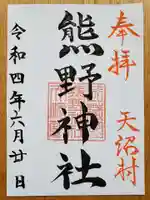 奉拝
天沼村
熊野神社
令和四年六月廿日